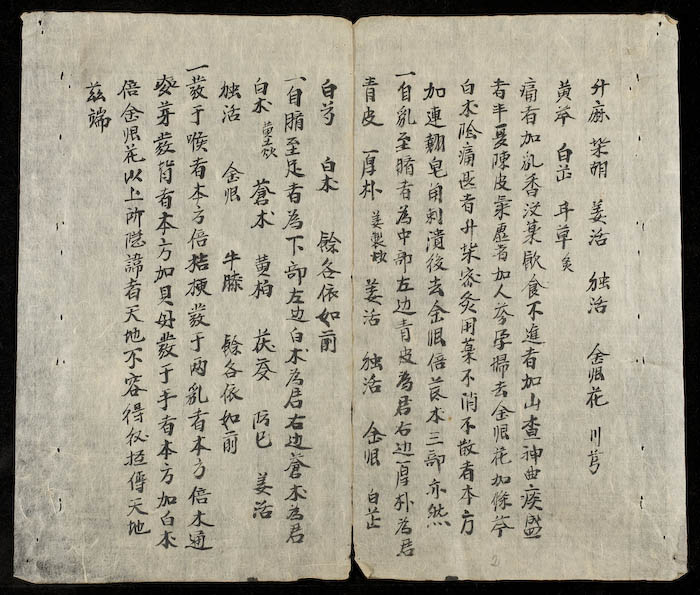 升麻 柴胡 羗活 独活 金艮花 川芎
黄芩 白芷 甘草炙
痛者加乳香没薬飲食不進者加山查神曲痰盛
者半夏陳皮氣虚者加人参孕婦去金艮花加條芩
白术陰痛匹者升柴審炙用薬不消不散者本方
加連翹皂角刺潰後去金艮倍芪术三部亦然
一自乳至臍者為中部左边青皮為君右边厚朴為君
青皮 厚朴姜製炒 羗活 独活 金艮 白芷
白芍 白术 餘各依如前
一自臍至足者為下部左边白术為君右边蒼术為君
白术黄土炒 蒼术 黄柏 茯苓 防已 羗活
独活 金艮 牛膝 餘各依如前
一發于喉者本方倍桔梗發于两乳者本方倍木通
麥芽發背者本方加貝母發于手者本方加白术
倍金艮花以上所隱諱者天地不容得 傳天地
兹端